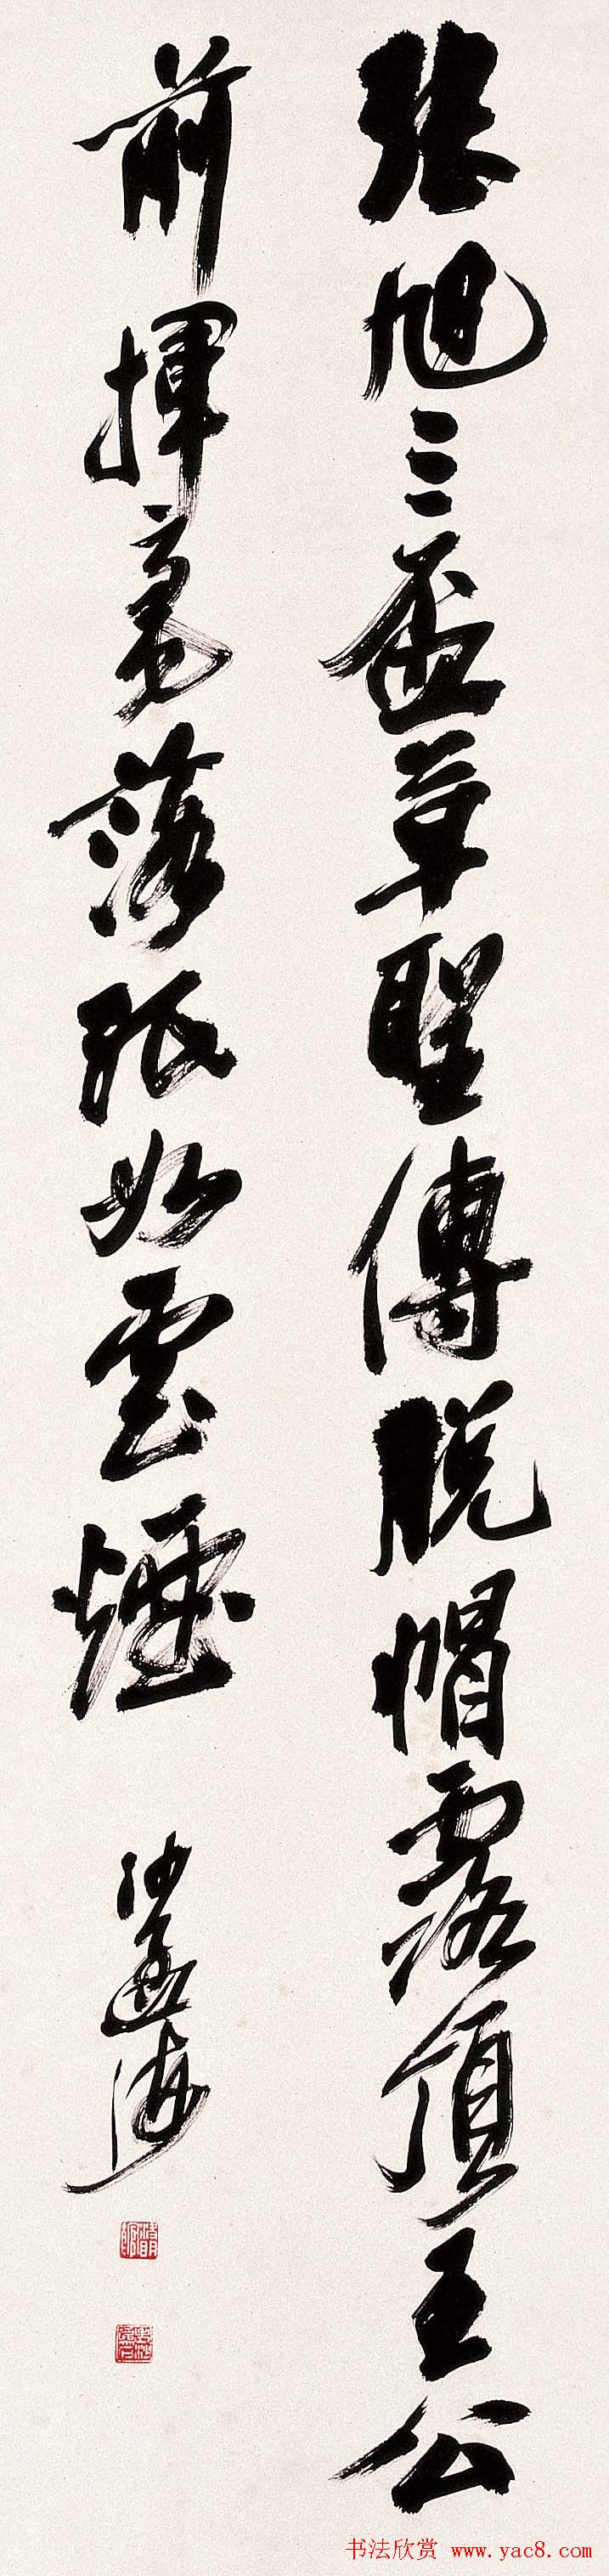 張旭三盃草聖傳脫帽露頂王公
前揮毫落紙如雲煙
沙孟海
书法欣赏 www.yac8.com